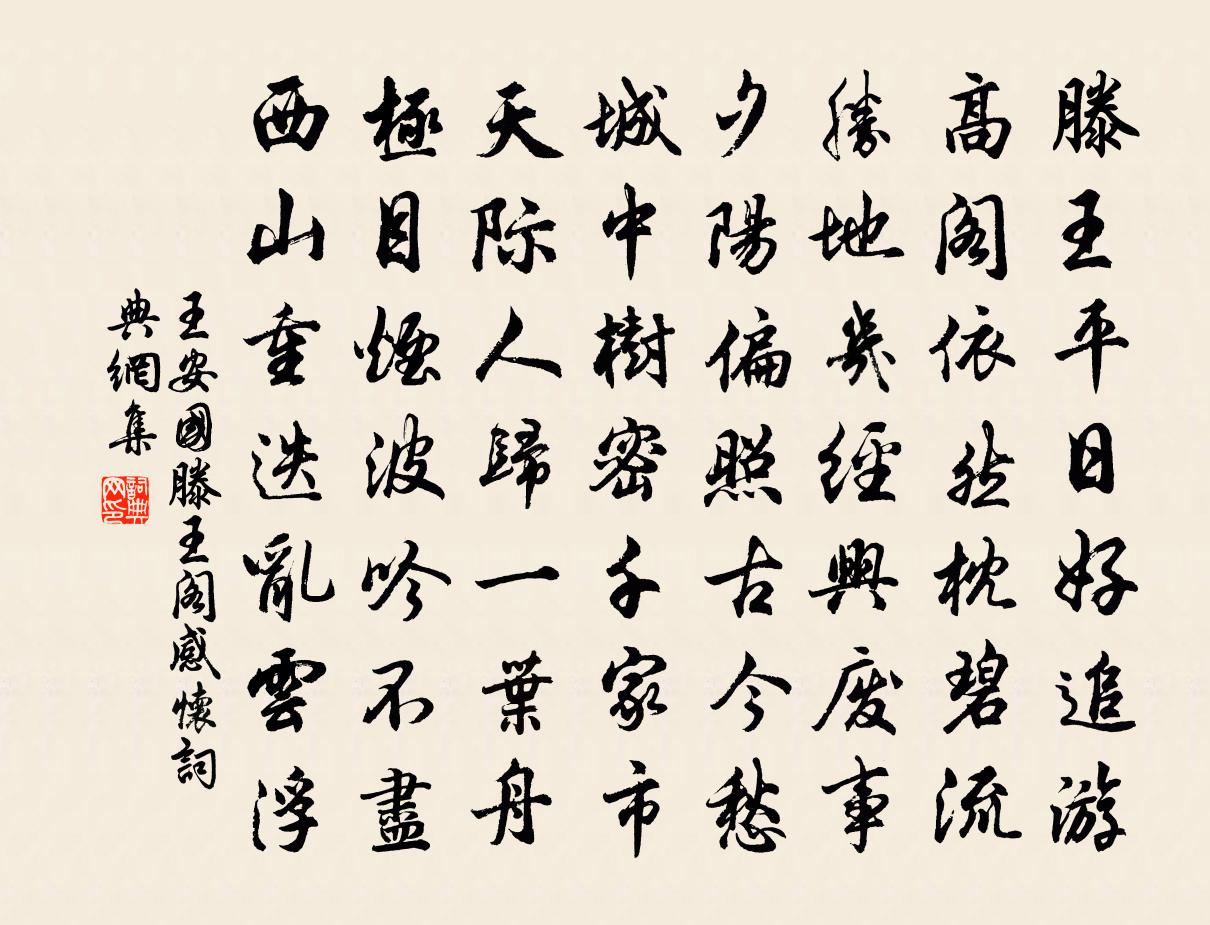 滕王平日好追游
高阁依然枕碧流
勝地幾經興废事
夕陽偏照古今愁
城中樹密千家市
天际人歸一葉舟
極目煙波吟不盡
西山重迭亂雲浮
王安國滕王阁感懷詞
典網集
詞典
网印